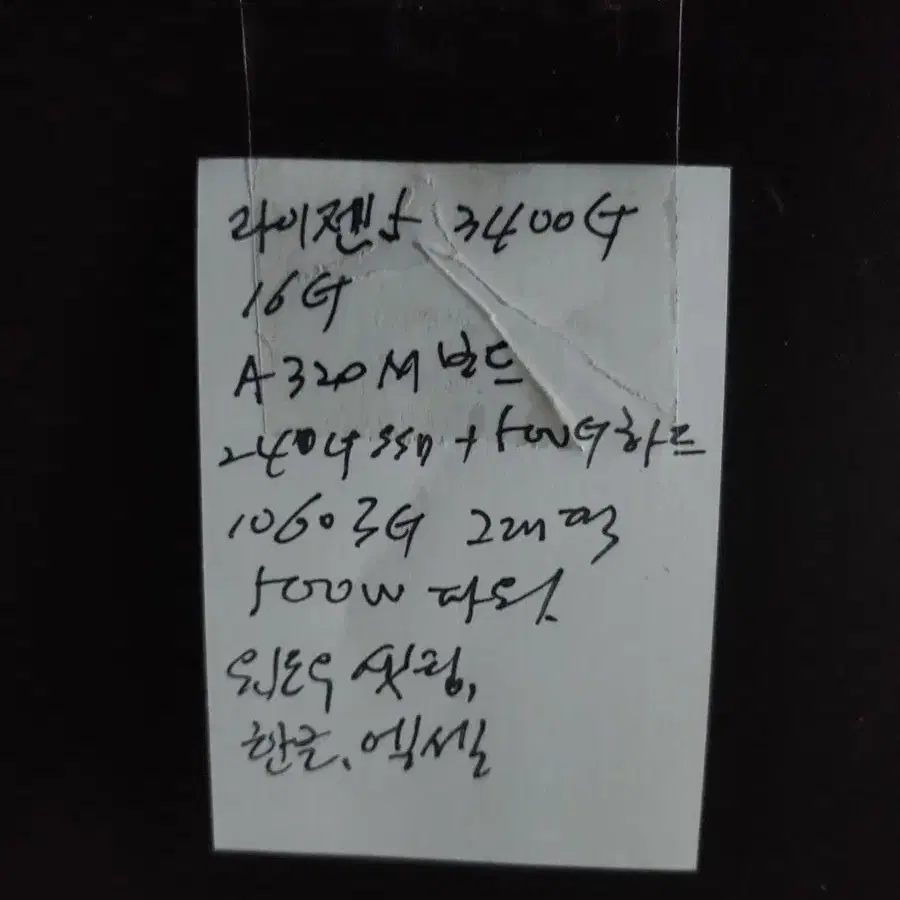 라이젠5 3400G
16G
A320M 보드
240G SSD + 500G하드
1060 3G 그래픽
500W 파워.
윈도우 셋팅,
한글, 엑셀